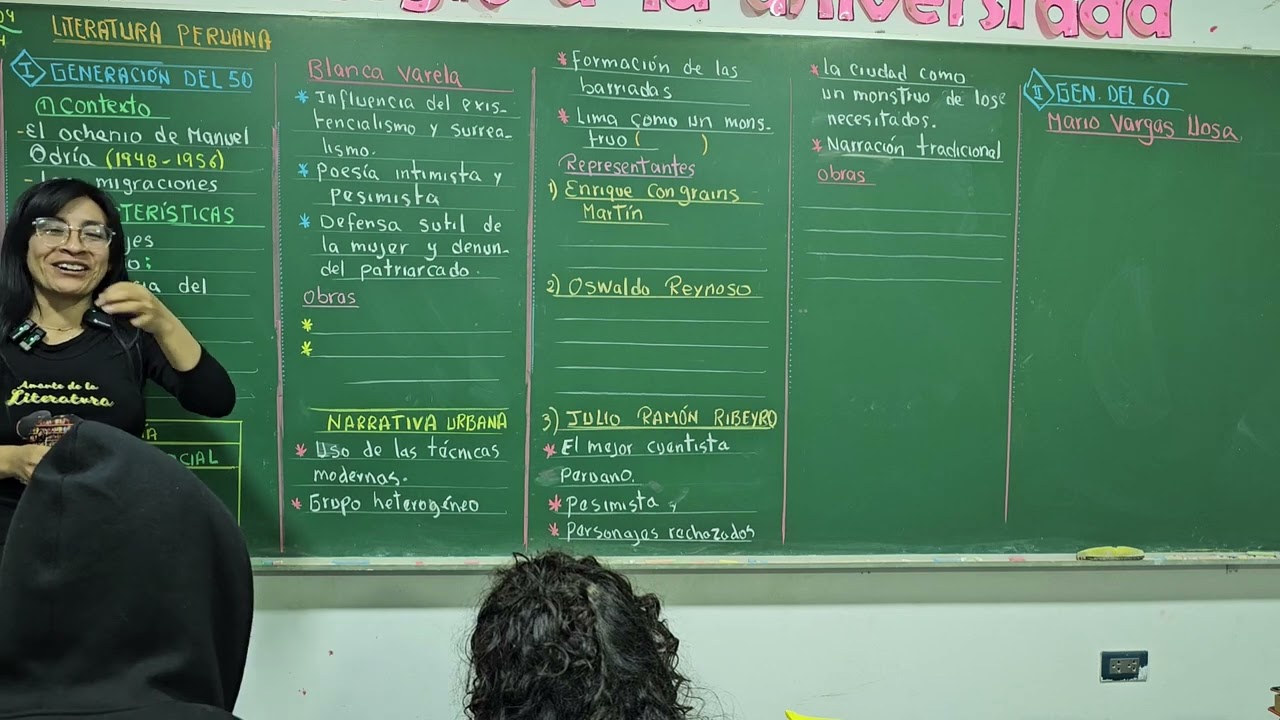 LITERATURA PERUANA
I GENERACIÓN DEL 50
① Contexto
-El ochenio de Manuel
Odría (1948-1956)
migraciones
TERÍSTICAS
del
CIAL
Blanca Varela
* Influencia del exis-
tencialismo y surrea-
lismo.
* Poesía intimista y
pesimista
* Defensa sutil de
la mujer y denun-
del patriarcado.
obras
*
*
NARRATIVA URBANA
* Uso de las técnicas
modernas.
* Grupo heterogéneo
* Formación de las
barriadas
* Lima como un mons-
truo ( )
Representantes
1) Enrique Congrains
Martín
2) Oswaldo Reynoso
3) JULIO RAMÓN RIBEYRO
* El mejor cuentista
Peruano.
* Pesimista
* Personajes rechazados
* la ciudad como
un monstruo de lose
necesitados.
* Narración tradicional
obras
II GEN. DEL 60
Mario Vargas Llosa
a la universidad
Amante de la
Literatura